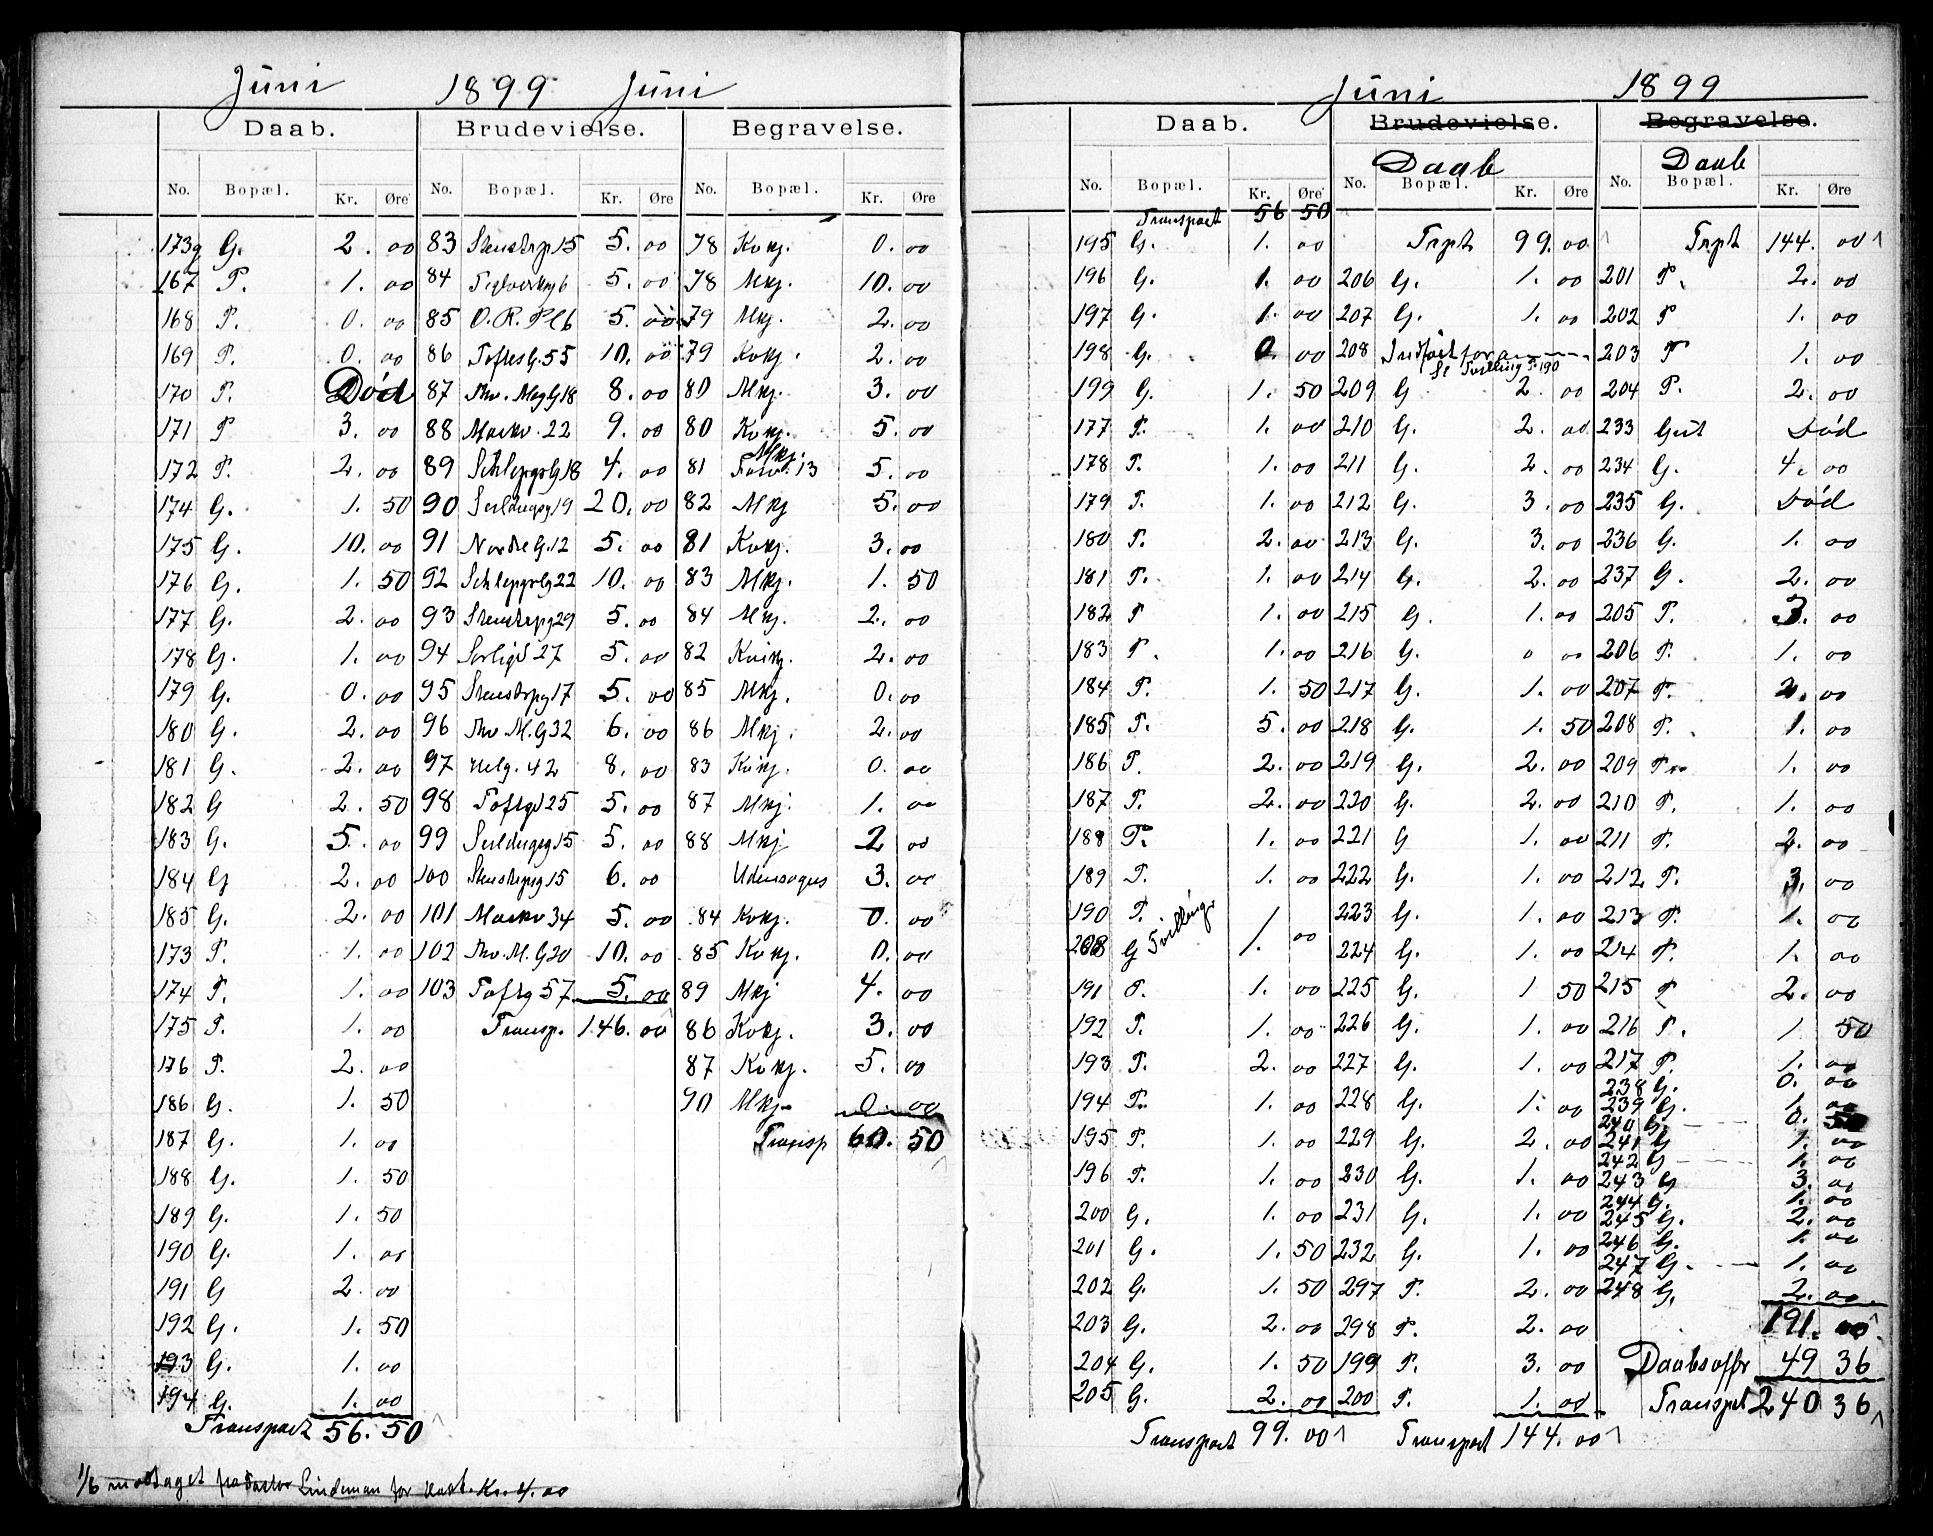 Juni 1899 Juni
Daab. Brudevielse. Begravelse.
No. Bopæl. Kr. Øre No. Bopæl. Kr. Øre No. Bopæl. Kr. Øre
173 G. 2. 00 83 Stenstrpg 15 5. 00 78 Kvkj. 0. 00
167 P. 1. 00 84 Teglverksg 6 5. 00 78 Mkj. 10. 00
168 P. 0. 00 85 O. R. Pl 6 5. 00 79 Mkj. 2. 00
169 P. 0. 00 86 Toftesg. 55 10. 00 79 Kvkj. 2. 00
170 P. Død 87 Thv. Meyg 18 8. 00 80 Mkj. 3. 00
171 P 3. 00 88 Markv. 22 9. 00 80 Kvkj. 5. 00
172 P. 2. 00 89 Schleppgrlg 18 4. 00 81 Mkj. 13 5. 00
174 G. 1. 50 90 Seildugsg 19 20. 00 82 Mkj 5. 00
175 G. 10. 00 91 Nordre G. 12 5. 00 81 Kvkj. 3. 00
176 G. 1. 50 92 Schleppgrlg 22 10. 00 83 Mkj. 1. 50
177 G. 2. 00 93 Stenstrpg 29 5. 00 84 Mkj. 2. 00
178 G. 1. 00 94 Sorlig 27 5. 00 82 Kvkj. 2. 00
179 G. 0. 00 95 Stenstrpg 17 5. 00 85 Mkj. 0. 00
180 G. 2. 00 96 Thv. M. G 32 6. 00 86 Mkj. 2. 00
181 G. 2. 00 97 Helg. 42 8. 00 83 Kvkj. 0. 00
182 G 2. 50 98 Toftg 25 5. 00 87 Mkj. 1. 00
183 G. 5. 00 99 Seildugsg 15 5. 00 88 Mkj 2 00
184 G 2. 00 100 Stenstrpsg 15 6. 00 Udensogns 3. 00
185 G. 2. 00 101 Markv 34 5. 00 84 Kvkj. 0. 00
173 P. 1. 00 102 Thv. M. G 20 10. 00 85 Kvkj. 0. 00
174 P. 1. 00 103 Toftg 57 5. 00 89 Mkj 4. 00
175 P. 1. 00 Transp. 146. 00 86 Kvkj. 3. 00
176 P. 2. 00 87 Kvkj. 5. 00
186 G. 1. 50 90 Mkj. 0. 00
187 G. 1. 00 Transp 60. 50
188 G. 1. 50
189 G. 1. 50
190 G. 1. 00
191 G 2. 00
192 G. 1. 50
193 G. 1. 00
194 G. 1. 00
Transport 56. 50
1/6 mottaget fra Pastor Lindeman for Kr. 4. 00
Juni 1899
Daab. Brudevielse. Begravelse.
Daab Daab
No. Bopæl. Kr. Øre No. Bopæl. Kr. Øre No. Bopæl. Kr. Øre
Transport 56 50
195 G. 1. 00 Trpt 99. 00 Trpt 144. 00
196 G. 1. 00 206 G. 1. 00 201 P. 2. 00
197 G. 1. 00 207 G. 1. 00 202 P 1. 00
198 G. 0. 00 208 Indført foran 203 P 1. 00
Se Tvilling P. 190
199 G. 1. 50 209 G 2. 00 204 P. 2. 00
177 P. 1. 00 210 G. 2. 00 233 Gut Død
178 P. 1. 00 211 G. 2. 00 234 G. 4. 00
179 P. 1. 00 212 G. 3. 00 235 G. Død
180 P. 2. 00 213 G. 3. 00 236 G. 1. 00
181 P. 1. 00 214 G. 2. 00 237 G. 2. 00
182 P 1. 00 215 G. 1. 00 205 P. 3. 00
183 P. 1. 00 216 G. 0 00 206 P. 1. 00
184 P. 1. 50 217 G. 1. 00 207 P. 2. 00
185 P. 5. 00 218 G. 1. 50 208 P. 1. 00
186 P. 2. 00 219 G. 2. 00 209 P. 1. 00
187 P. 2. 00 220 G. 2. 00 210 P. 1. 00
188 P. 1. 00 221 G 1. 00 211 P. 2. 00
189 P. 1. 00 222 G. 1. 00 212 P. 3. 00
190 P. Tvillinger 1. 00 223 G. 1. 00 213 P. 1. 00
208 G 224 G. 1. 00 214 P. 1. 00
191 P. 1. 00 225 G. 1 50 215 P 2. 00
192 P. 1. 00 226 G. 1. 00 216 P. 1. 50
193 P. 2. 00 227 G. 1. 00 217 P. 1. 00
238 G. 0. 00
194 P. 1. 00 228 G. 1. 00 239 G. 1. 00
240 G. 0. 50
195 P. 1. 00 229 G. 2. 00 241 G 1. 00
242 G 1. 00
196 P. 1. 00 230 G. 1. 00 243 G 3. 00
244 G. 1. 00
200 G. 1. 00 231 G. 1. 00 245 G. 2. 00
201 G. 1. 50 232 G. 1. 00 246 G. 1. 00
247 G. 1. 00
202 G. 1. 50 297 P. 2. 00 248 G. 2. 00
203 G. 2. 00 298 P. 2. 00 191. 00
204 G. 1. 50 199 P. 3. 00 Daabsoffr 49 36
205 G. 2. 00 200 P. 1. 00 Transpt 240 36
Transport 99. 00 Transport 144. 00